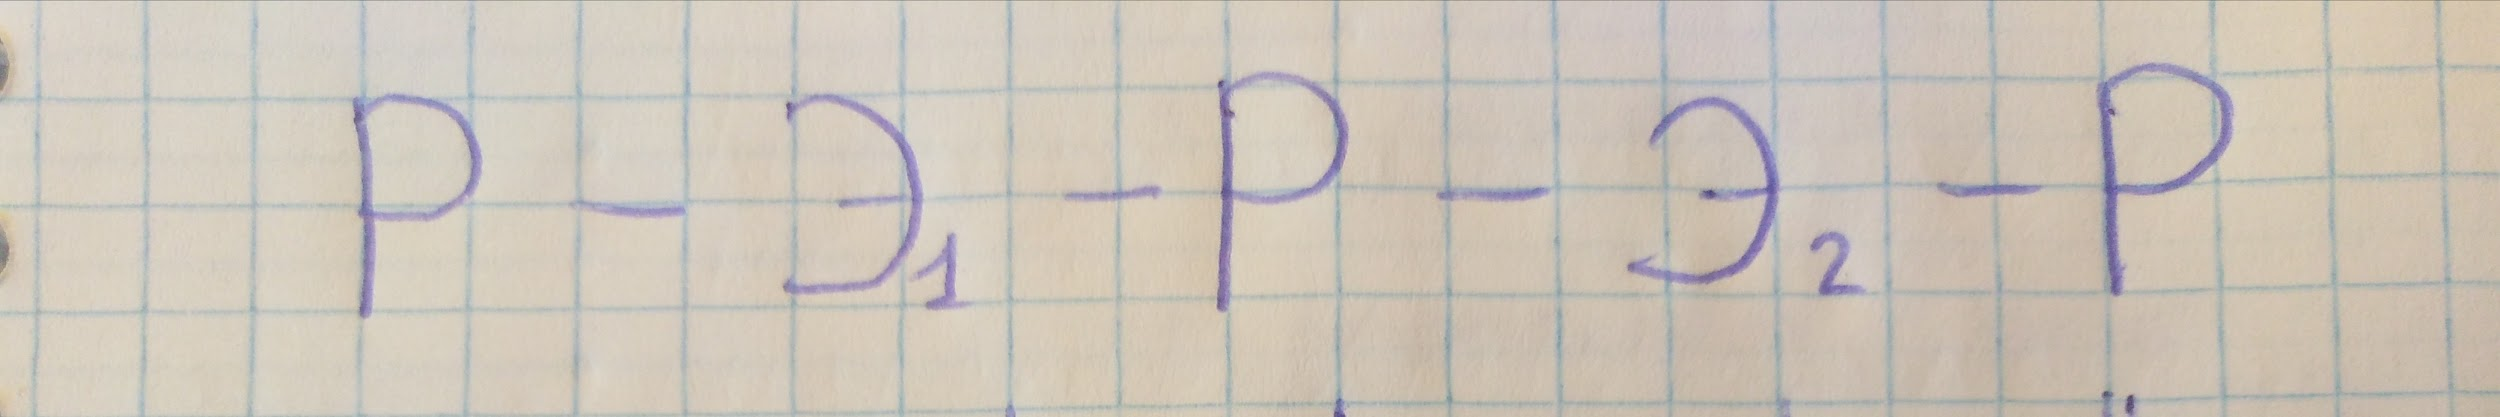 Р - Э₁ - Р - Э₂ - Р